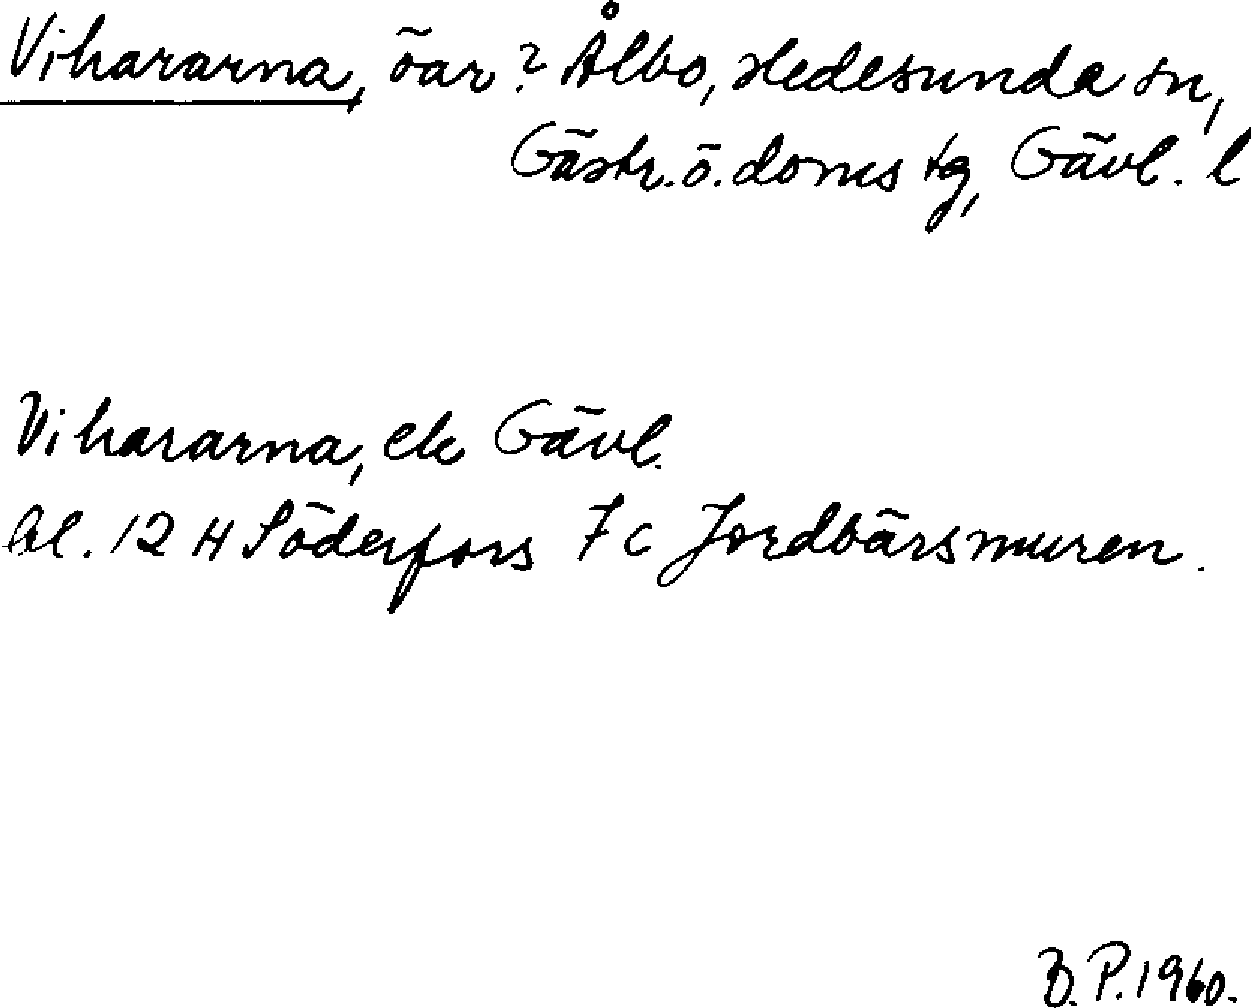 Vihararna, öar? Ålbo, Hedesunda sn,
Gästr. ö. doms tg, Gävl. l
Vihararna, ek Gävl.
bl. 12 H Söderfors 7 c Jordbärsmuren.
B. P. 1960.